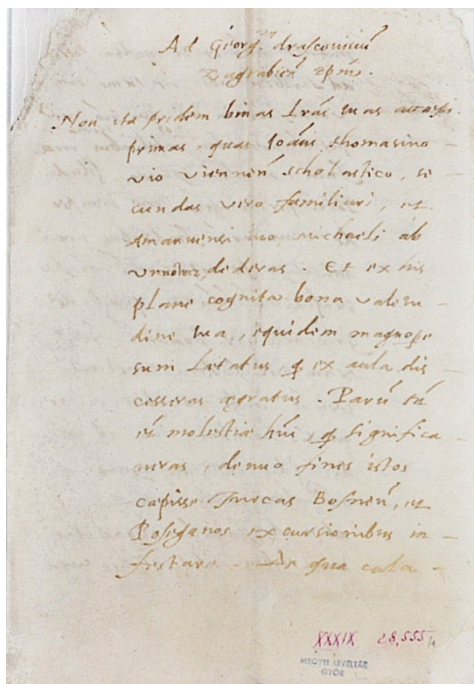 Ad Georg.ᵘᵐ drascoviciū
Zagrabień epm̄.
Non ita pridem binas lrās tuas accepi.
primas, quas Ioāni Thomasino
vio Viennēn scholastico, se
cundas vero familiari, et
Amanuensi tuo Michaeli ab
dederas. Et ex his
plane cognita bona valetu-
dine tua, equidem magnope
sum laetatus, ꝙ ex aula dis
cesseras aegratus. Parū tā
et molestiae hūi, ꝙ significa-
veras, denuo fines istos
caepisse Turcas Bosnēn, et
Poseganos excursionibus in-
festare. De qua cala-
XXXIX 28,555/1
MEGYEI LEVÉLTÁR
GYŐR